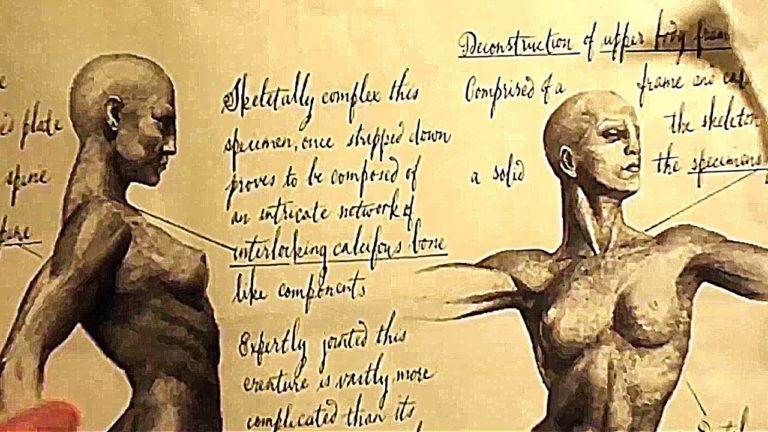 plate
spine
Skeletally complex this
specimen, once stripped down
proves to be composed of
an intricate network of
interlocking calcifous bone
like components
Expertly jointed this
creature is vastly more
complicated than its
Deconstruction of upper body
Comprised of a frame and
the skeleton
a solid the specimens